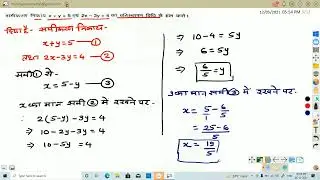 समीकरण निकाय x + y = 5 एवं 2x - 3y = 4 का प्रतिस्थापन विधि से हल करो।
दिया है - समीकरण निकाय-
x+y=5 — ①
तथा 2x-3y=4 — ②
समी① से-
x=5-y — ③
x का मान समी② में रखने पर-
2(5-y)-3y=4
⇒ 10-2y-3y=4
⇒ 10-5y=4
⇒ 10-4=5y
⇒ 6=5y
⇒ 6/5=y
y का मान समी③ में रखने पर-
x=5/1-6/5
=25-6/5
x=19/5